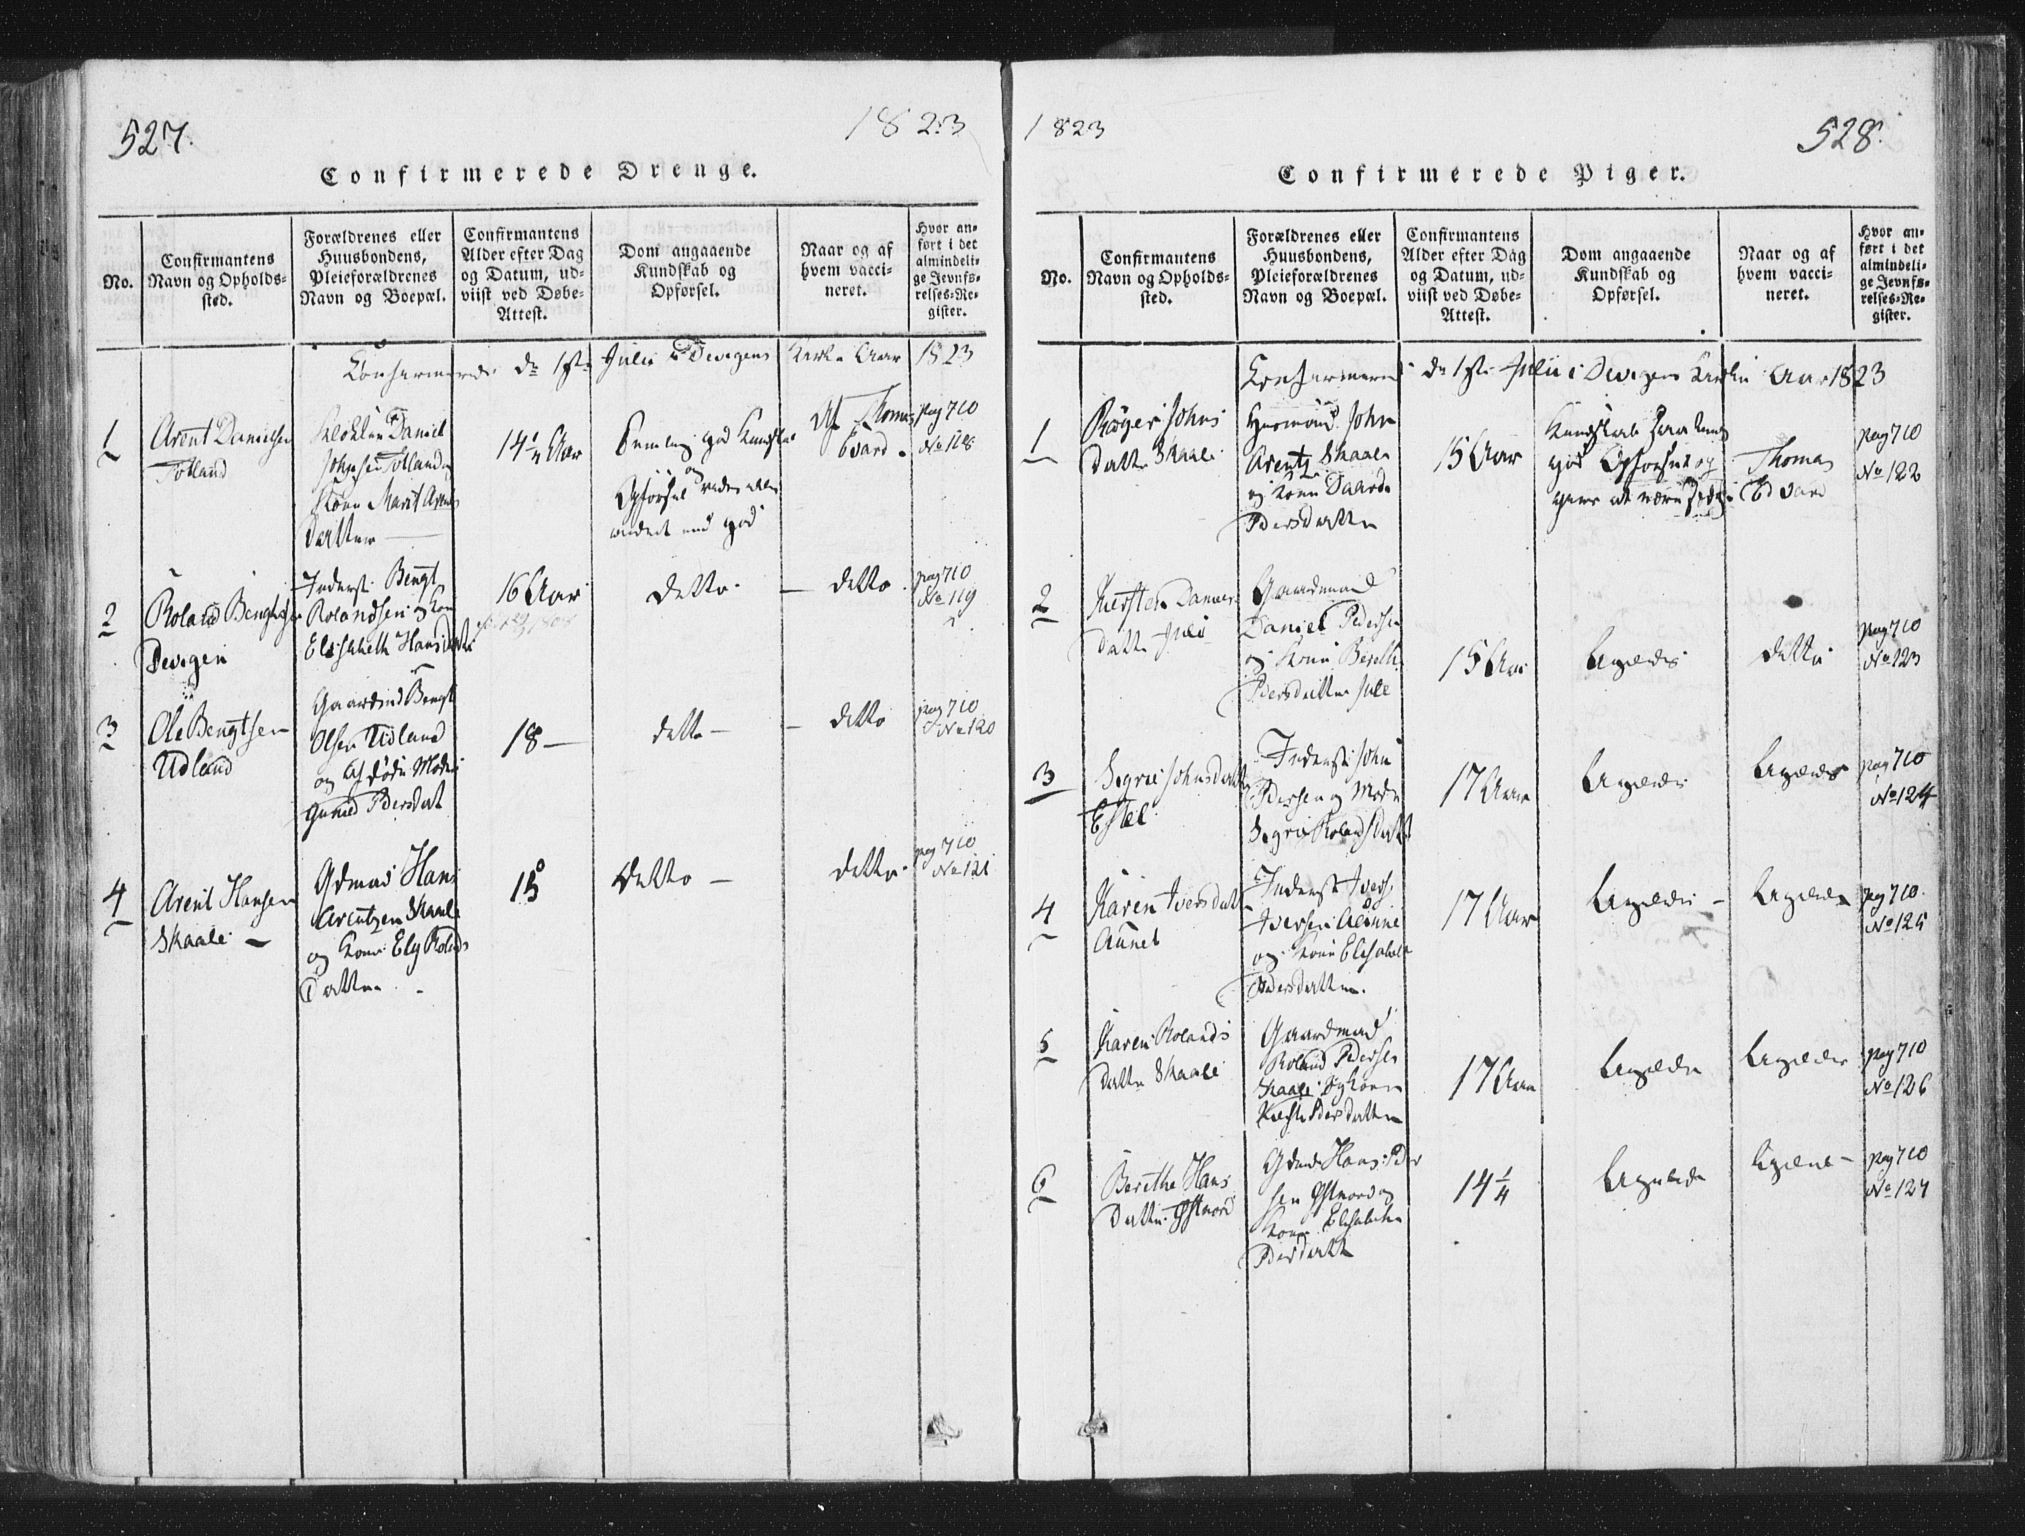 527.
1823
Confirmerede Drenge.
No.
Confirmantens
Navn og Opholds-
sted.
Forældrenes eller
Huusbondens,
Pleieforældrenes
Navn og Boepæl.
Confirmantens
Alder efter Dag
og Datum, ud-
viist ved Døbe-
Attest.
Dom angaaende
Kundskab og
Opførsel.
Naar og af
hvem vacci-
neret.
Hvor an-
ført i det
almindeli-
ge Jevnfø-
relses-Re-
gister.
Julii
1823
1
Arent Danielsen
Totland
Daniel
Totland
Marit
Datter
14 1/4 Aar
god
Opførsel
andert end god
Af Thomas
Edvard.
pag 710
No 118
2
Roland Bengtsen
Devigen
Inderst Bengt
Rolandsen og Kone
Elisabeth Hansdatter
16 Aar
detto.
detto.
pag 710
No 119
3
Ole Bengtsen
Udland
Gaardmd Bengt
Olsen Udland
og Moder
Gunild Pdersdat
18 —
detto —
— detto
pag 710
No 120
4
Arent Hansen
Skaale —
Hans
Arentzen Skaale
og Kone Ely Rolds
Datter
15
Detto —
detto.
pag 710
No 121
1823
528.
Confirmerede Piger.
No.
Confirmantens
Navn og Opholds-
sted.
Forældrenes eller
Huusbondens,
Pleieforældrenes
Navn og Boepæl.
Confirmantens
Alder efter Dag
og Datum, ud-
viist ved Døbe-
Attest.
Dom angaaende
Kundskab og
Opførsel.
Naar og af
hvem vacci-
neret.
Hvor an-
ført i det
almindeli-
ge Jevnfø-
relses-Re-
gister.
Julii i Devigens Kirke Aar 1823
1
Johns
datter Skaale
Huusmand John
Arentz Skaale
og Kone
Pdersdatter
15 Aar
Kundskab
god Opførsel og
Thomas
Edvard
pag 710
No 122
2
Kirsten Daniels
datter
Gaardmand
Daniel Pedersen
og Kone Bereth
Pdersdatter
15 Aar
Ligeledes
detto
pag 710
No 123
3
Johnsdatter
Inderst John
Pdersen og Moder
17 Aar
Ligeledes
Ligeledes
pag 710
No 124
4
Karen Iversdatter
Aunet
Inderst Iver
Iversen
og Kone Elisabeth
Pdersdatter.
17 Aar
Ligeledes —
Ligeledes
pag 710.
No 125
5
Karen Rolands
datter Skaale
Gaardmand
Roland Pedersen
Skaale og Konen
Pdersdatter
17 Aar
Ligeledes
Ligeledes
pag 710
No 126
6
Berethe Hans
datter
Hans Pder
sen
Kone Elisabeth
Pdersdatter
14 1/4
Ligeledes
pag 710
No 127